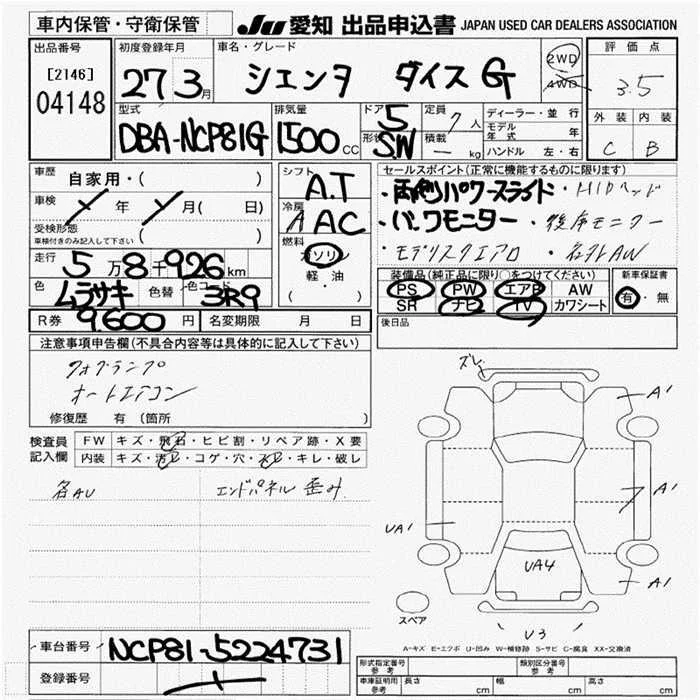 車内保管・守衛保管
JU 愛知 出品申込書 JAPAN USED CAR DEALERS ASSOCIATION
出品番号
[2146]
04148
初度登録年月
27 3月
車名・グレード
シエンタ ダイス G
2WD
4WD
評価点
3.5
外装 内装
C B
型式
DBA-NCP81G
排気量
1500 CC
ドア 5
形状 S.W
定員 7人
積載 — kg
ディーラー・並行
モデル年式 年
ハンドル 左・右
車歴 自家用・( )
車検 年 月( 日)
受検形態
車検付きのみ記入して下さい ( )
走行 5万8千926km
色 ムラサキ 色替 色コード 3R9
シフト A.T
冷房 A AC
燃料 ガソリン
軽・油
( )
セールスポイント(正常に機能するものに限ります)
・両側パワースライド・HIDヘッド
・バックモニター・後席モニター
・モデリスタエアロ・社外AW
装備品(純正品に限り○をつけてください)
PS PW エアB AW
SR ナビ TV カワシート
新車保証書
有・無
R券 9,600 円 名変期限 月 日
後日品
注意事項申告欄(不具合内容等は具体的に記入して下さい)
フォグランプ
オートエアコン
修復歴 有 (箇所 )
検査員記入欄
FW キズ・飛石・ヒビ割・リペア跡・X要
内装 キズ・汚レ・コゲ・穴・スレ・キレ・破レ
各AU エンドパネル 歪み
ズレ
A1
A1
UA1
UA4
A1
V3
スペア
A-キズ E-エクボ U-凹み W-補修跡 S-サビ C-腐食 XX-交換済
車台番号 NCP81-5224731
登録番号
形式指定番号 参考
類別区分番号 参考
車庫証明用 参考 長さ cm 幅 cm 高さ cm